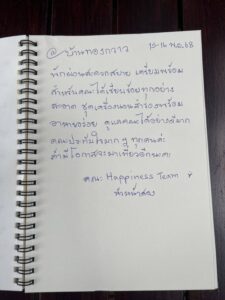 @บ้านทองกวาว 15-16 พ.ย.68
ที่พักผ่อนสะดวกสบาย เตรียมพร้อม
สำหรับคณะได้เรียบร้อยทุกอย่าง
สะอาด ชุดเครื่องนอนสำรองพร้อม
อาหารอร่อย ดูแลคณะได้อย่างดีมาก
คณะประทับใจมาก ๆ ทุกคนค่ะ
ถ้ามีโอกาสจะมาเที่ยวอีกนะคะ
คณะ Happiness Team